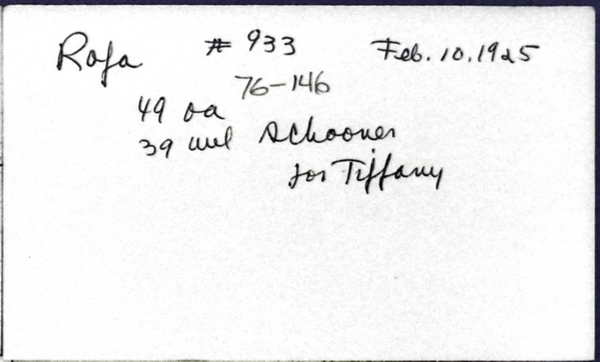 Rofa # 933 Feb. 10, 1925
76-146
49 oa
39 wl Schooner
for Tiffany